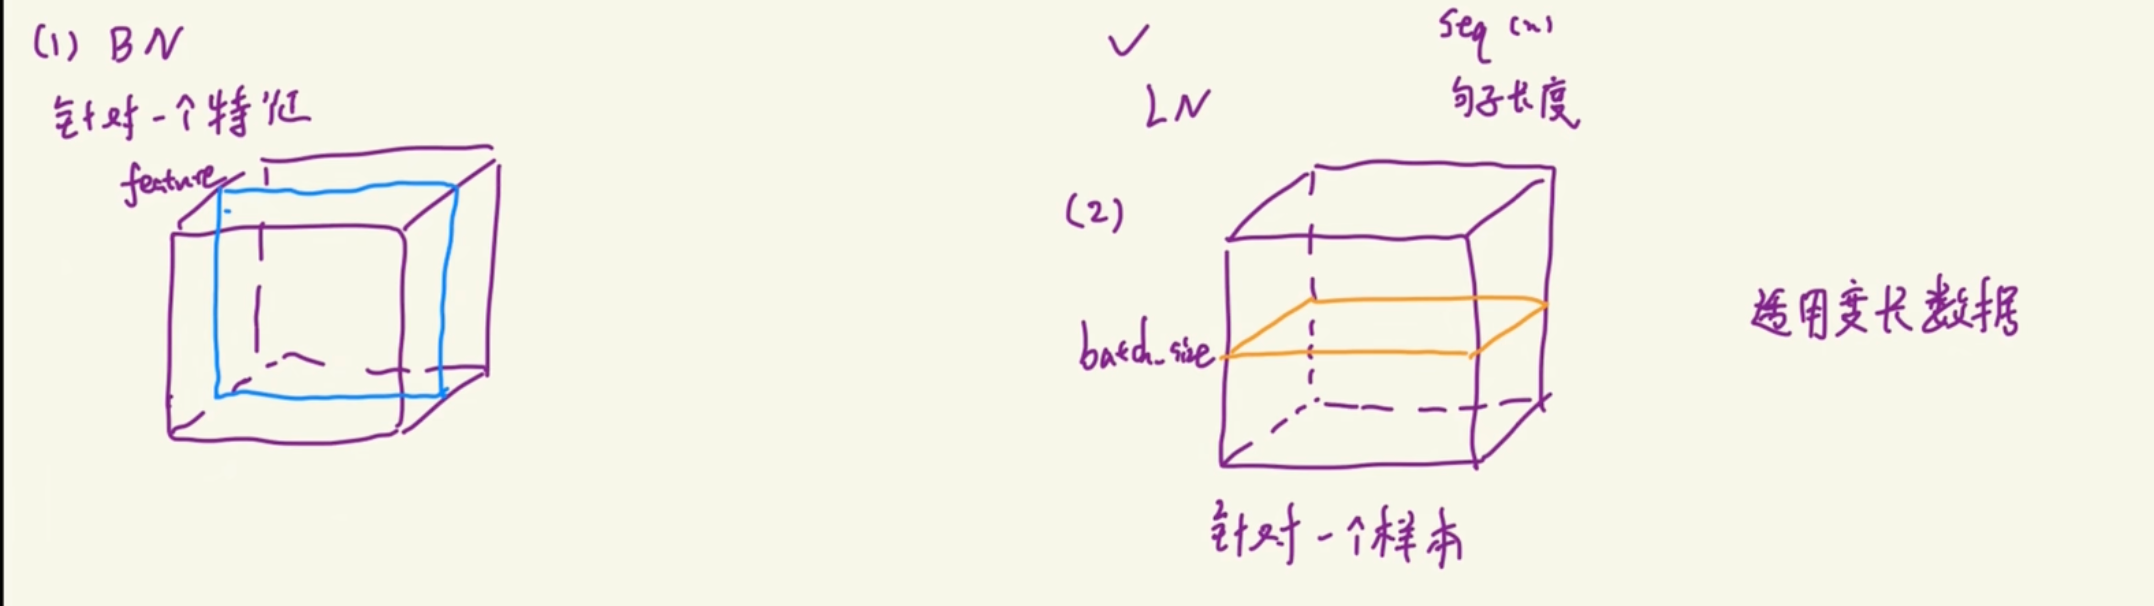 (1) BN
针对一个特征
feature
✓
LN
seq (n)
句子长度
(2)
batch_size
针对一个样本
适用变长数据